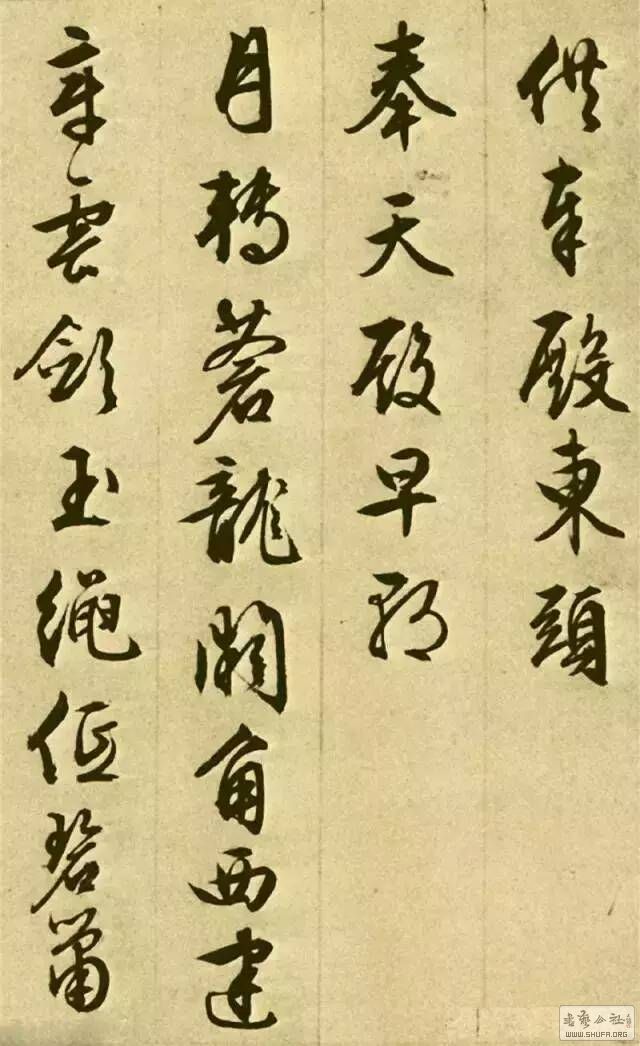 供奉殿東頭
奉天殿早朝
月轉蒼龍闕角西建
章雲斂玉繩低碧簫
书艺公社
WWW.SHUFA.ORG